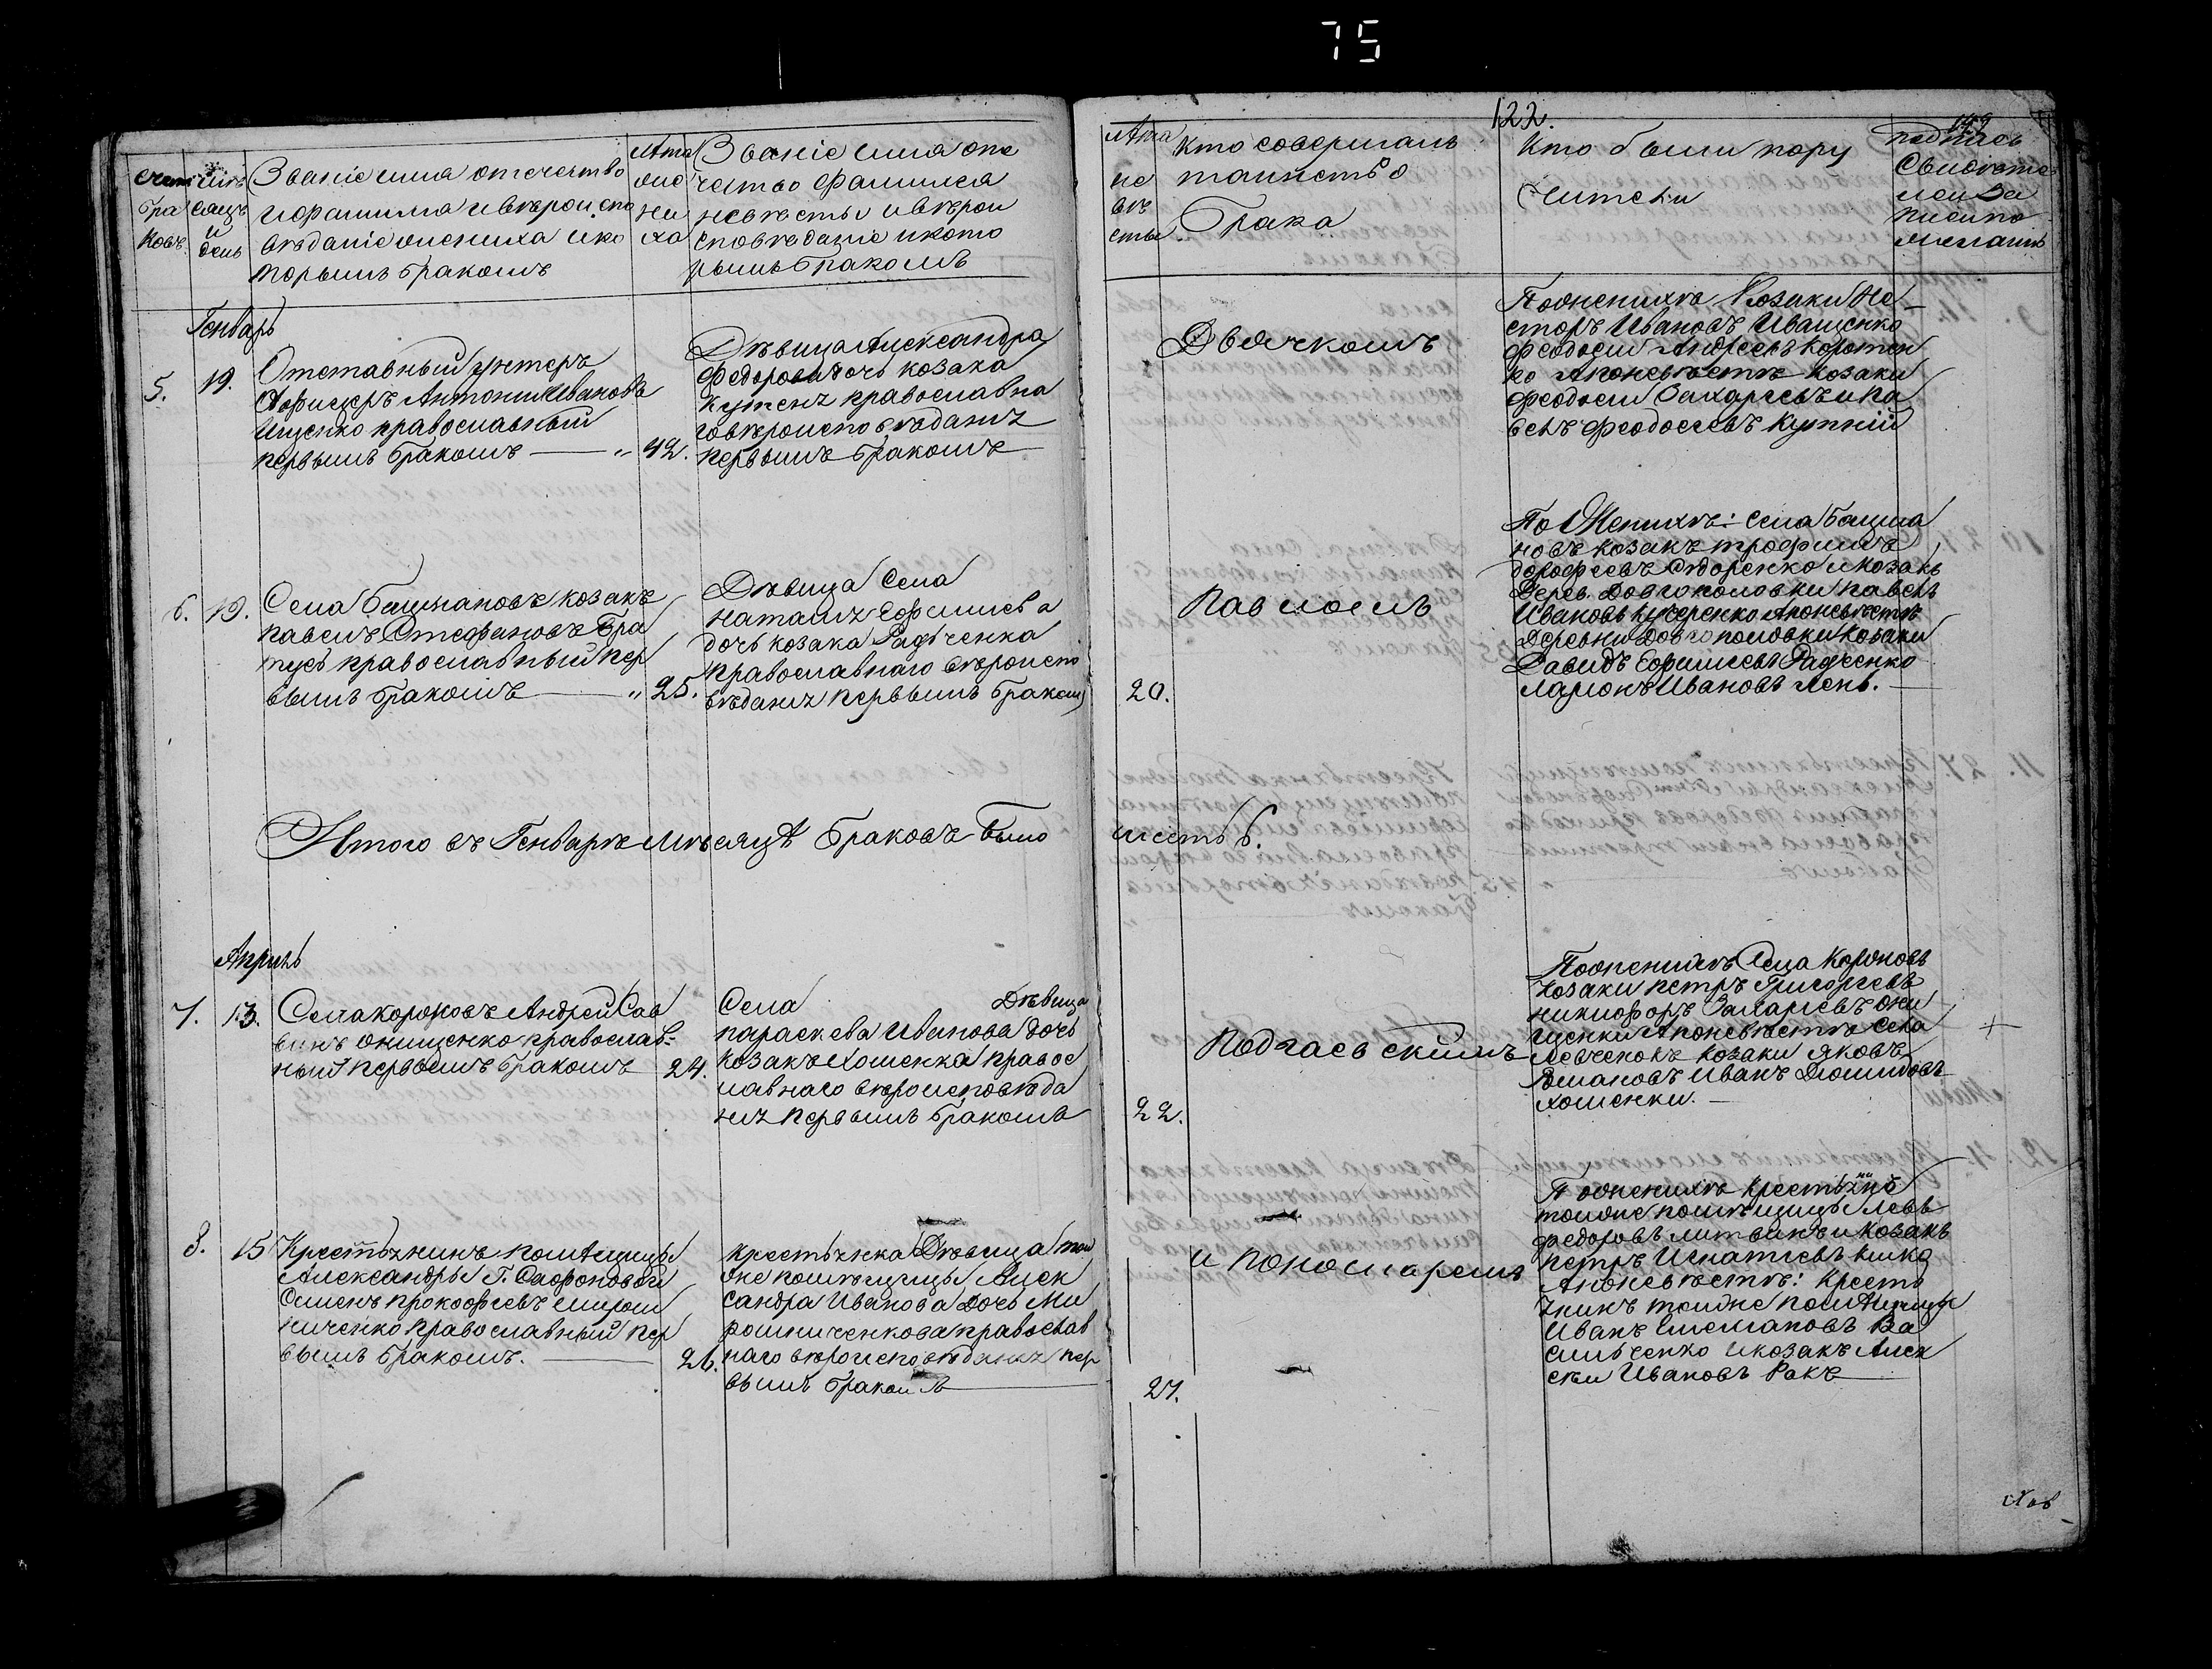 75
122.
149
Счетъ бра ковъ.
Мѣ сяцъ и день
Званіе имя отечество
и фамилія и вѣроиспо
вѣданіе жениха и ко
торымъ бракомъ
Лѣта
же
ни
ха
Званіе имя оте
чество фамилія
невѣсты и вѣрои
сповѣданіе и кото
рымъ бракомъ
Лѣта
не
вѣ
сты
Кто совершалъ
таинство
брака
Кто были пору
чители
подпись
свидѣте
лей за
писи по
желанію
Генварь
5.
19.
Отставный унтеръ
Офицеръ Антоній Ивановъ
Ищенко православный
первымъ бракомъ
42.
Дѣвица Александра
Федорова дочь козака
православна
го вѣроисповѣданія
первымъ бракомъ
Дьячкомъ
По женихѣ Козаки Не
сторъ Ивановъ Иващенко
Феодосій Андреевъ Коротен
ко А по невѣстѣ козаки
Феодосій Захаріевъ и Па
велъ Феодосіевъ Купній
6.
19.
Села Башмановъ козакъ
Павелъ Стефановъ
православный пер
вымъ бракомъ
25.
Дѣвица Села
Наталія Ефимиева
дочь козака Радченка
православнаго вѣроиспо
вѣданія первымъ бракомъ
20.
Павломъ
По Женихѣ: Села Башма
новъ козакъ Трофимъ
Дорофеевъ Сидоренко и козакъ
Дерев. Довгополовки Павелъ
Ивановъ Кучеренко А по невѣстѣ
Деревни Довгополовки козаки
Давидъ Ефимиевъ Радченко
Ларіонъ Ивановъ Лень.
Итого въ Генварѣ Мѣсяцѣ браковъ было
шесть 6.
Апрѣль
7.
13.
Села Короновъ Андрей Сав
винъ Онищенко православ-
ный первымъ бракомъ
24.
Села Дѣвица
Параскева Иванова дочь
козакъ Хоменка правос
лавнаго вѣроисповѣда
нія первымъ бракомъ
22.
Подгаевскимъ
По женихѣ Села Короновъ
козаки Петръ Григоріевъ
Никифоръ Захаріевъ Они
щенки А по невѣстѣ Села
Левченковъ козаки Яковъ
Романовъ Иванъ
Хоменки.
8.
15
Крестьянинъ помѣщицы
Александры Г. Сафоновой
Семенъ Прокофіевъ Мирош
ниченко православный пер
вымъ бракомъ.
26.
крестьянка Дѣвица той
же помѣщицы Алек
сандра Иванова дочь Ми
рошниченкова православ
наго вѣроисповѣданія пер
вымъ бракомъ
27.
и пономаремъ
По женихѣ крестьянинъ
той же помѣщицы Левъ
Федоровъ Литвинъ и козакъ
Петръ Игнатіевъ
А по невѣстѣ: кресть
янинъ той же помѣщицы
Иванъ Ва
сильченко и козакъ Алек
сѣй Ивановъ Ракъ